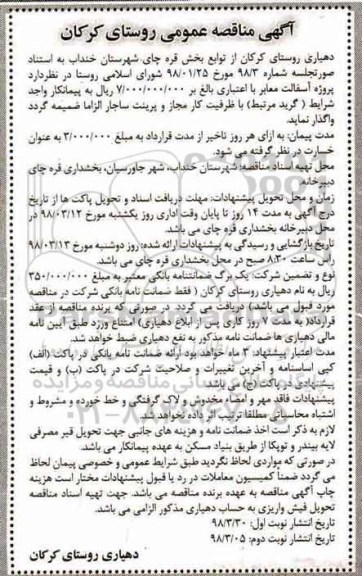 آگهی مناقصه عمومی روستای کرکان
دهیاری روستای کرکان از توابع بخش قره چای شهرستان خنداب به استناد
صورتجلسه شماره ۹۸/۳ مورخ ۹۸/۰۱/۲۵ شورای اسلامی روستا در نظردارد
پروژه آسفالت معابر با اعتباری بالغ بر ۷/۰۰۰/۰۰۰/۰۰۰ ریال به پیمانکار واجد
شرایط ( گرید مرتبط) با ظرفیت کار مجاز و پرینت ساجار الزاما ضمیمه گردد
واگذار نماید.
مدت پیمان: به ازای هر روز تاخیر از مدت قرارداد به مبلغ ۳/۰۰۰/۰۰۰ به عنوان
خسارت در نظر گرفته می شود.
محل تهیه اسناد مناقصه: شهرستان خنداب، شهر جاورسیان، بخشداری قره چای
دبیرخانه
زمان و محل تحویل پیشنهادات: مهلت دریافت اسناد و تحویل پاکت ها از تاریخ
درج آگهی به مدت ۱۴ روز تا پایان وقت اداری روز یکشنبه مورخ ۹۸/۰۳/۱۲ در
محل دبیرخانه بخشداری قره چای می باشد.
تاریخ بازگشایی و رسیدگی به پیشنهادات ارائه شده: روز دوشنبه مورخ ۹۸/۰۳/۱۳
راس ساعت ۸:۳۰ صبح در محل بخشداری قره چای می باشد.
نوع و تضمین شرکت: یک برگ ضمانتنامه بانکی معتبر به مبلغ ۳۵۰/۰۰۰/۰۰۰
ریال به نام دهیاری روستای کرکان ( فقط ضمانت نامه بانکی شرکت در مناقصه
مورد قبول می باشد) دریافت می گردد در صورتی که برنده مناقصه از عقد
قرارداد( به مدت ۷ روز کاری پس از ابلاغ دهیاری) امتناع ورزد طبق آیین نامه
مالی دهیاری ها ضمانت نامه مذکور به نفع دهیاری ضبط خواهد شد.
مدت اعتبار پیشنهاد: ۳ ماه خواهد بود ارائه ضمانت نامه بانکی در پاکت (الف)
کپی اساسنامه و آخرین تغییرات و صلاحیت شرکت در پاکت (ب) و قیمت
پیشنهادی در پاکت (ج) می باشد.
پیشنهادات فاقد مهر و امضاء مخدوش و لاک گرفتگی و خط خورده و مشروط و
اشتباه محاسباتی مطلقا ترتیب اثر داده نخواهد شد.
لازم به ذکر است اخذ ضمانت نامه و هزینه های جانبی جهت تحویل قیر مصرفی
لایه بیندر و توپکا از طریق بنیاد مسکن به عهده پیمانکار می باشد.
در صورتی که مواردی لحاظ نگردید طبق شرایط عمومی و خصوصی پیمان لحاظ
می گردد ضمنا کمیسیون معاملات در رد یا قبول پیشنهادات مختار است هزینه
چاپ آگهی مناقصه به عهده برنده مناقصه می باشد. جهت تهیه اسناد مناقصه
تحویل فیش واریزی به حساب دهیاری مذکور الزامی می باشد.
تاریخ انتشار نوبت اول: ۹۸/۳/۳۰
تاریخ انتشار نوبت دوم: ۹۸/۳/۰۵
دهیاری روستای کرکان